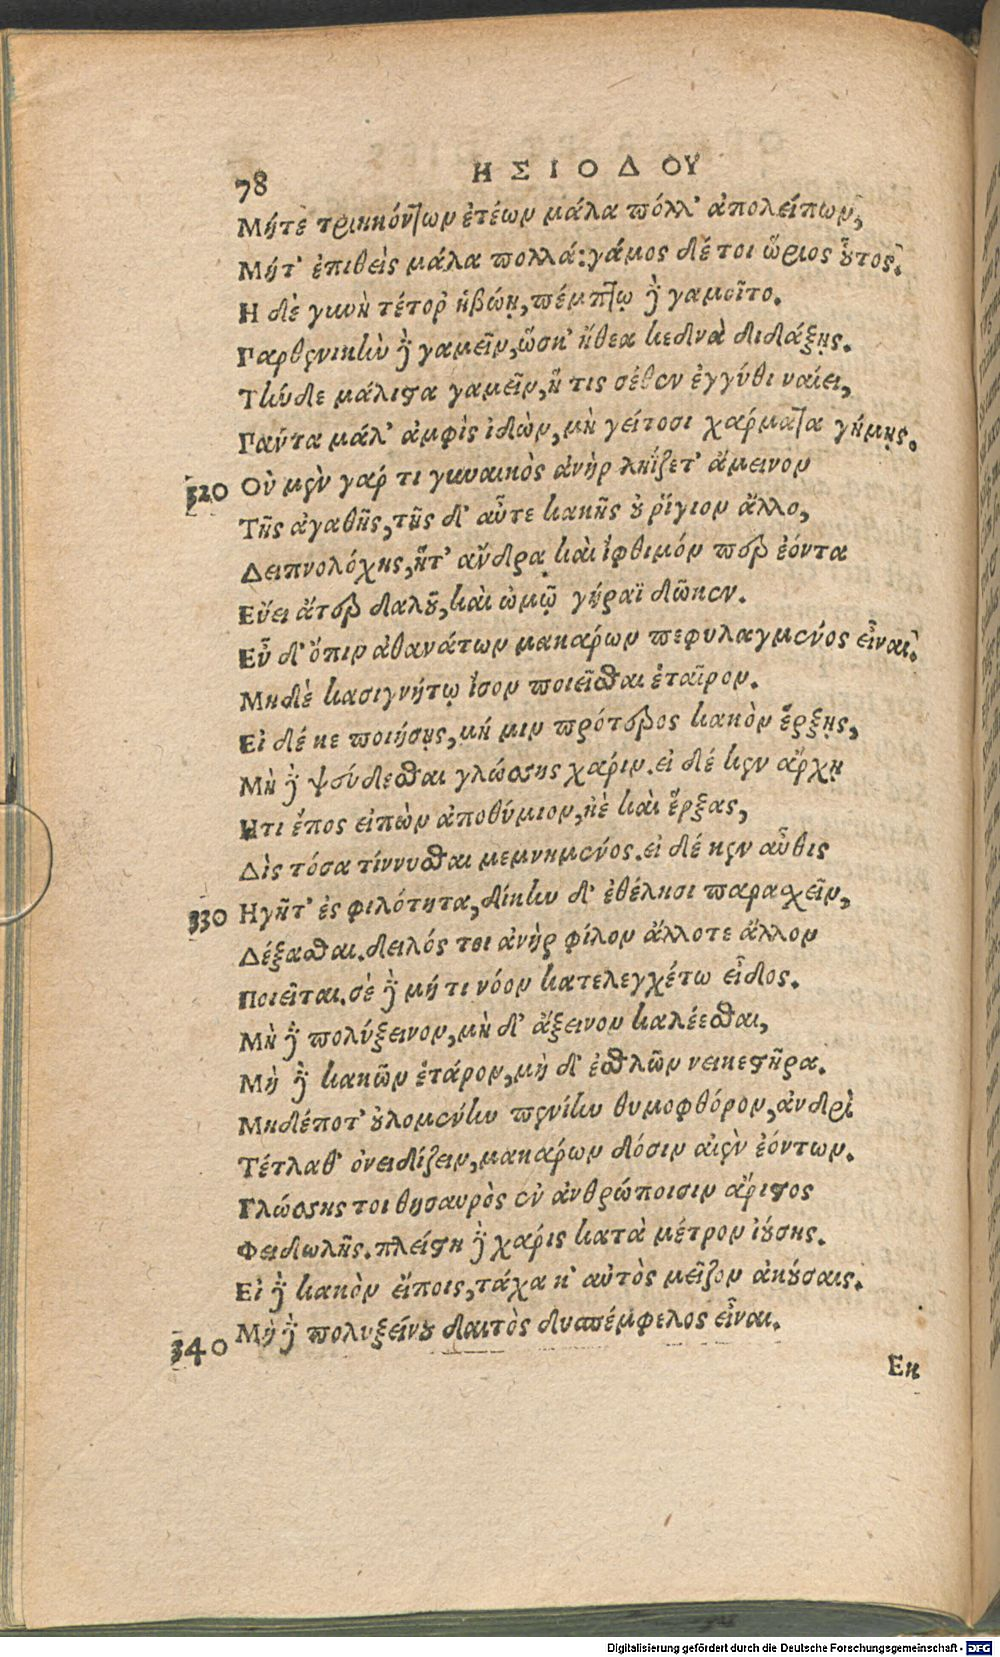 78 ΗΣΙΟΔΟΥ
Μήτε τριηκόντων ἐτέων μάλα πόλλ' ἀπολείπων,
Μήτ' ἐπιθεὶς μάλα πολλά: γάμος δέ τοι ὥριος οὗτος.
Η δὲ γυνὴ τέτορ' ἡβώῃ, πέμπτῳ δὲ γαμοῖτο.
Παρθενικὴν δὲ γαμεῖν, ὥσκ' ἤθεα κεδνὰ διδάξῃς.
Τὴν δὲ μάλιστα γαμεῖν, ἥ τις σέθεν ἐγγύθι ναίει,
Πάντα μάλ' ἀμφὶς ἰδὼν, μὴ γείτοσι χάρματα γήμῃς.
320 Οὐ μὲν γάρ τι γυναικὸς ἀνὴρ ληΐζετ' ἄμεινον
Τῆς ἀγαθῆς, τῆς δ' αὖτε κακῆς οὐ ῥίγιον ἄλλο,
Δειπνολόχης, ἥτ' ἄνδρα καὶ ἴφθιμόν περ ἐόντα
Εὕει ἄτερ δαλοῦ, καὶ ὠμῷ γήραϊ δῶκεν.
Εὖ δ' ὄπιν ἀθανάτων μακάρων πεφυλαγμένος εἶναι.
Μηδὲ κασιγνήτῳ ἴσον ποιεῖσθαι ἑταῖρον.
Εἰ δέ κε ποιήσῃς, μή μιν πρότερος κακὸν ἔρξῃς,
Μὴ δὲ ψεύδεσθαι γλώσσης χάριν. εἰ δέ κεν ἄρχῃ
Ητι ἔπος εἰπὼν ἀποθύμιον, ἠὲ καὶ ἔρξας,
Δὶς τόσα τίννυσθαι μεμνημένος. εἰ δέ κεν αὖθις
330 Ηγῆτ' ἐς φιλότητα, δίκην δ' ἐθέλησι παρασχεῖν,
Δέξασθαι. δειλός τοι ἀνὴρ φίλον ἄλλοτε ἄλλον
Ποιεῖται. σὲ δὲ μή τι νόον κατελεγχέτω εἶδος.
Μὴ δὲ πολύξεινον, μὴ δ' ἄξεινον καλέεσθαι,
Μὴ δὲ κακῶν ἑτάρον, μὴ δ' ἐσθλῶν νεικεστῆρα.
Μηδέποτ' οὐλομένην πενίην θυμοφθόρον, ἀνδρὶ
Τέτλαθ' ὀνειδίζειν, μακάρων δόσιν αἰὲν ἐόντων.
Γλώσσης τοι θησαυρὸς ἐν ἀνθρώποισιν ἄριστος
Φειδωλῆς. πλείστη δὲ χάρις κατὰ μέτρον ἰούσης.
Εἰ δὲ κακὸν εἴποις, τάχα κ' αὐτὸς μεῖζον ἀκούσαις.
340 Μὴ δὲ πολυξείνου δαιτὸς δυσπέμφελος εἶναι.
Εκ
Digitalisierung gefördert durch die Deutsche Forschungsgemeinschaft - DFG